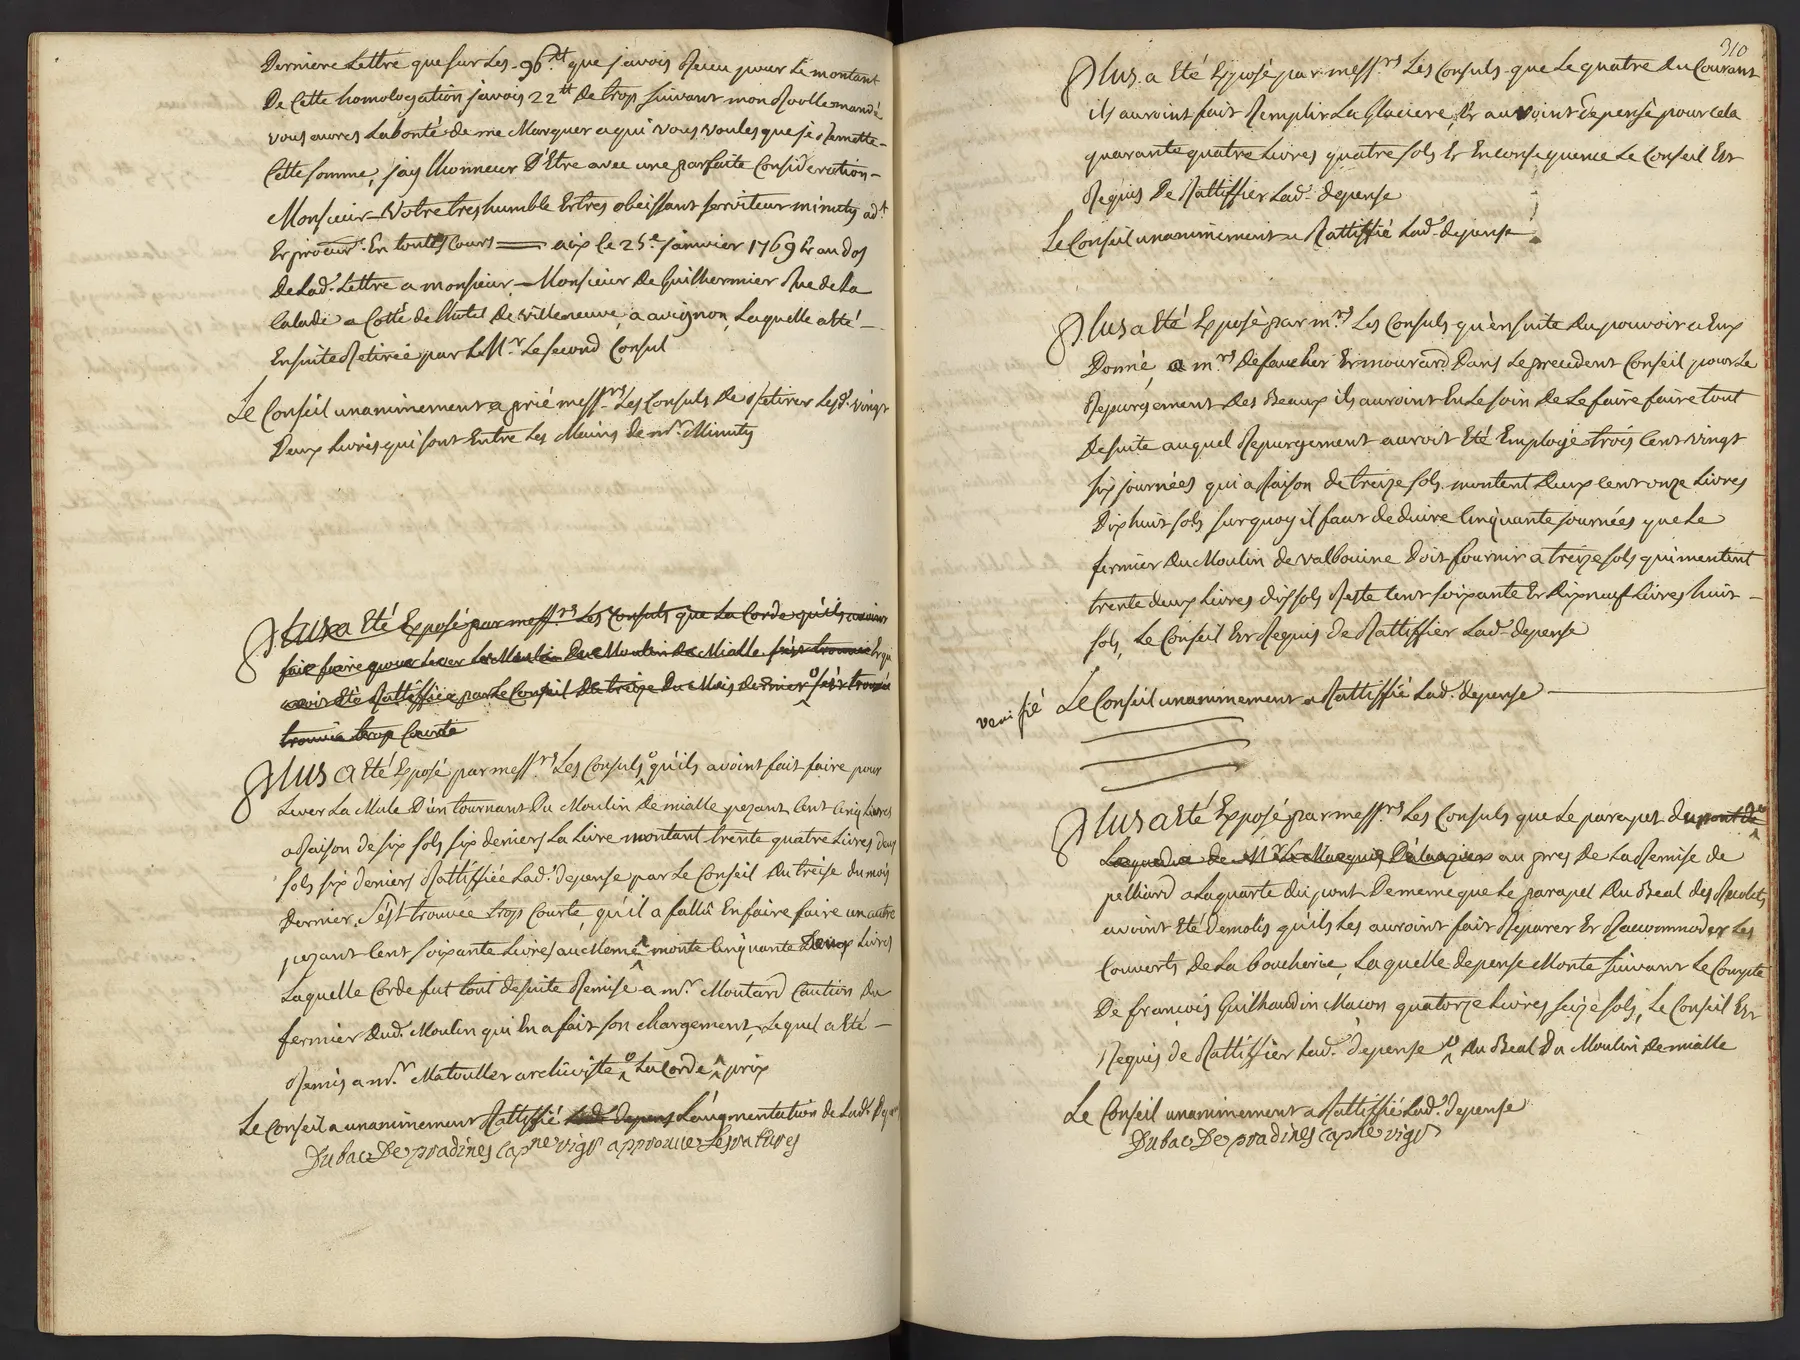 Derniere Lettre que sur Les 96.tt que j'avois Receu pour Le montant
De Cette homologation j'avois 22tt De trop suivant mon Rolle mandé
vous aures La bonté de me Marquer a qui vous voules que je Remette
Cette somme, j'ay L'honneur D'Etre avec une parfaite Consideration
Monsieur Votre tres humble Et tres obeissant serviteur minuty ad.t
Et procur.r En toutes Cours aix le 25e janvier 1769 Et au dos
De Lad. Lettre a monsieur Monsieur de Guilhermier Rue de La
Calade a Cotté de L'hotel De Villeneuve, a avignon, Laquelle a eté
Ensuite Retirée par L M.r Le second Consul
Le Conseil unanimement a prié mess.rs Les Consuls De Retirer Lesd. vingt
Deux Livres qui sont Entre Les Mains de mr. Minuty
Plus a Eté Exposé par mess.rs Les Consuls que La Corde qu'ils avoint
fait faire pour Lever Du Moulin De Mialle s'est trouvée Et qui
avoit Eté Rattiffiée par Le Conseil De treize Du Mois dernier s'est trouvée
trouvée trop Courte
Plus a Eté Exposé par mess.rs Les Consuls o qu'ils avoint fait faire pour
Lever La Mule D'un tournant Du Moulin De mialle pezant Cent Cinq Livres
a Raison de six sols six deniers La Livre montant trente quatre Livres deux
sols six deniers Rattiffiée Lad. depense par Le Conseil Du treise du mois
dernier, s'est trouvée trop Courte, qu'il a fallû En faire faire un autre
pezant Cent soixante Livres au Meme ^ monte Cinquante Deux Livres
Laquelle Corde fut tout de suite Remise a mr. Moutard Caution Du
fermier Dud. Moulin qui En a fait son Chargement, Lequel a Eté
Remis a mr. Matouller archiviste o La Corde ^ prix
Le Conseil a unanimement Rattiffié Lad. depense L'augmentation de Lad.
Dubac De pradines cap.ne vigr approuve Les ratures
310
Plus a Eté Exposé par mess.rs Les Consuls que Le quatre Du Courant
ils auroint fait Remplir La Glaciere, Et auroint depensé pour cela
quarante quatre Livres quatre sols Et En consequence Le Conseil Est
Requis De Rattiffier Lad. depense
Le Conseil unanimement a Rattiffié Lad. depense
Plus a Eté Exposé par m.rs Les Consuls qu'ensuite Du pouvoir a Eux
Donné, a m.rs Defaucher Et mourard Dans Le precedent Conseil pour Le
Repurgement Des Beaux ils auroint Eu Le soin De Le faire faire tout
De suite auquel Repurgement auroit Eté Employé trois Cent vingt
six journées qui a Raison de treize sols montent Deux Cent onze Livres
Dix huit sols sur quoy il faut deduire Cinquante journées que Le
fermier Du Moulin de Valbouine Doit fournir a treize sols qui montent
trente deux Livres dix sols Reste Cent soixante Et Dix neuf Livres huit
sols, Le Conseil Est Requis de Rattiffier Lad. depense
verifié Le Conseil unanimement a Rattiffié Lad. depense
Plus a Eté Exposé par mess.rs Les Consuls que Le parapet du pont de o
de Mr. Le Marquis au pres De La Remise de
pelliard a La quarte du pont De meme que Le parapet Du Beal des Recolets
avoint Eté demolis qu'ils Les auroint fait Reparer Et Racommoder Les
Couverts De La boucherie, Laquelle depense Monte suivant Le Compte
De françois Guilhaudin Maçon quatorze Livres seize sols, Le Conseil Est
Requis de Rattiffier Lad. depense o Du Beal Du Moulin De mialle
Le Conseil unanimement a Rattiffié Lad. depense
Dubac De pradines cap.ne vigr